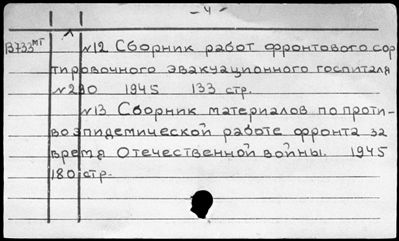 - 4 -
В733мг
№12 Сборник работ фронтового сор
тировочного эвакуационного госпиталя
№290 1945 133 стр.
№13 Сборник материалов по проти-
воэпидемической работе фронта за
время Отечественной войны. 1945
180 стр.